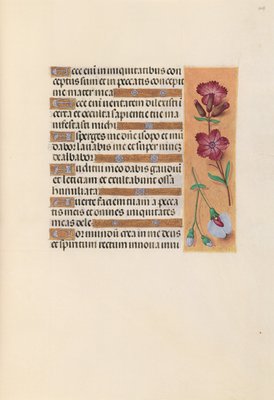 Ecce enī in iniquitatibus con
ceptus sum et in peccatis concepit
me mater mea
Ecce enī ueritatem dilexisti
certa et occulta sapientie tue ma
nifestasti michi
Asperges me dñe ysopo et mū
dabor lauabis me et super niuez
dealbabor
Auditui meo dabis gaudiū
et leticiam et exultabunt ossa
humiliata
Auerte faciem tuam a pecca
tis meis et omnes iniquitates
meas dele
Cor mundū crea in me deus
et spiritum rectum innoua in ui